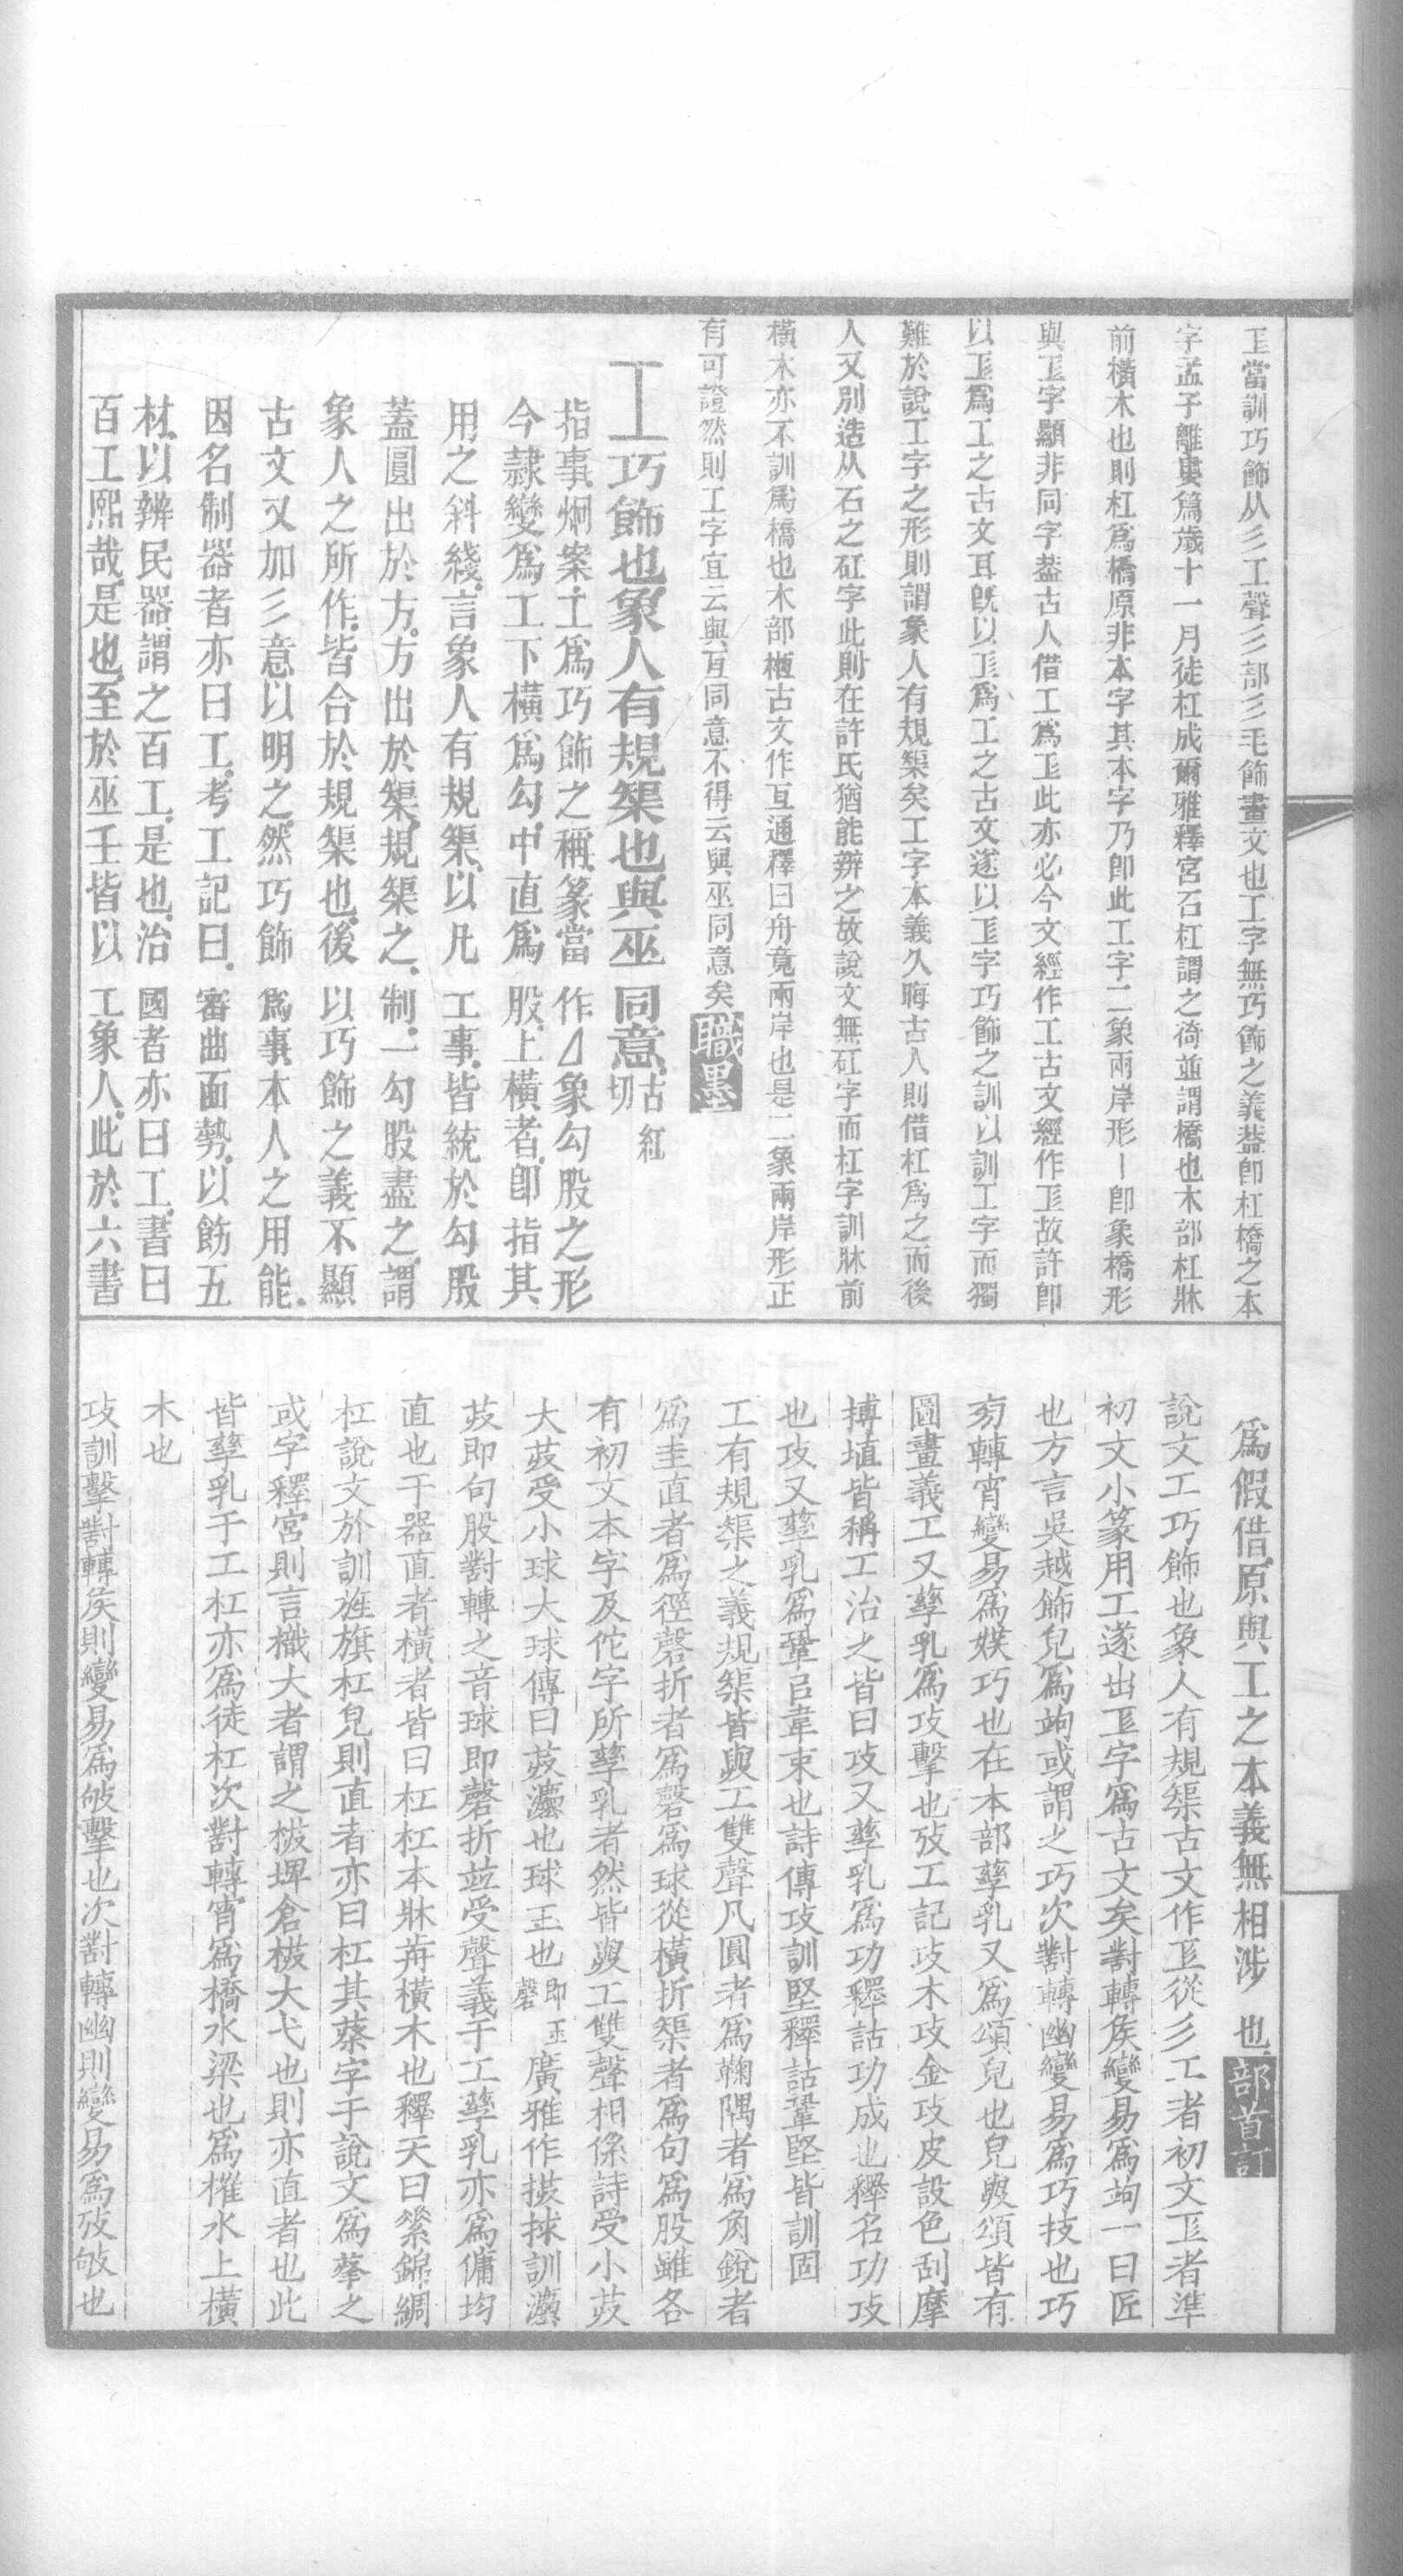 𢒄當訓巧飾从彡工聲彡部彡毛飾畫文也工字無巧飾之義葢卽杠橋之本
字孟子離婁篇歲十一月徒杠成爾雅釋宮石杠謂之徛並謂橋也木部杠牀
前橫木也則杠爲橋原非本字其本字乃卽此工字二象兩岸形丨卽象橋形
與𢒄字顯非同字葢古人借工爲𢒄此亦必今文經作工古文經作𢒄故許卽
以𢒄爲工之古文耳旣以𢒄爲工之古文遂以𢒄字巧飾之訓以訓工字而獨
難於說工字之形則謂象人有規榘矣工字本義久晦古人則借杠爲之而後
人又別造从石之矼字此則在許氏猶能辨之故說文無矼字而杠字訓牀前
橫木亦不訓爲橋也木部㮓古文作亙通釋曰舟竟兩岸也是二象兩岸形正
有可證然則工字宜云與亙同意不得云與巫同意矣職墨
工巧飾也象人有規榘也與巫同意古紅切
指事炯案工爲巧飾之稱篆當作⊿象勾股之形
今隷變爲工下橫爲勾中直爲股上橫者卽指其
用之斜綫言象人有規榘以凡工事皆統於勾股
蓋圓出於方方出於榘規榘之制一勾股盡之謂
象人之所作皆合於規榘也後以巧飾之義不顯
古文又加彡意以明之然巧飾爲事本人之用能
因名制器者亦曰工考工記曰審曲面勢以飭五
材以辨民器謂之百工是也治國者亦曰工書曰
百工熙哉是也至於巫壬皆以工象人此於六書
爲假借原與工之本義無相涉也部首訂
說文工巧飾也象人有規榘古文作𢒄從彡工者初文𢒄者準
初文小篆用工遂出𢒄字爲古文矣對轉矦變易爲竘一曰匠
也方言吳越飾皃爲竘或謂之巧次對轉幽變易爲巧技也巧
旁轉宵變易爲媄巧也在本部孳乳又爲頌皃也皃與頌皆有
圖畫義工又孳乳爲攻擊也攷工記攻木攻金攻皮設色刮摩
搏埴皆稱工治之皆曰攻又孳乳爲功釋詁功成也釋名功攻
也攻又孳乳爲鞏㠯韋束也詩傳攻訓堅釋詁鞏堅皆訓固
工有規榘之義規榘皆與工雙聲凡圓者爲鞠隅者爲角銳者
爲圭直者爲徑磬折者爲磬爲球從橫折榘者爲句爲股雖各
有初文本字及佗字所孳乳者然皆與工雙聲相係詩受小苃
大苃受小球大球傳曰苃灋也球玉也卽玉磬廣雅作拔捄訓灋
苃即句股對轉之音球即磬折竝受聲義于工孳乳亦爲傭均
直也于器直者橫者皆曰杠杠本牀歬橫木也釋天曰素錦綢
杠說文於訓旌旗杠皃則直者亦曰杠其蔡字于說文爲夆之
或字釋宮則言樴大者謂之栱埤倉栱大弋也則亦直者也此
皆孳乳于工杠亦爲徒杠次對轉宵爲橋水梁也爲榷水上橫
木也
攻訓擊對轉矦則變易爲㪃擊也次對轉幽則變易爲攷㪃也